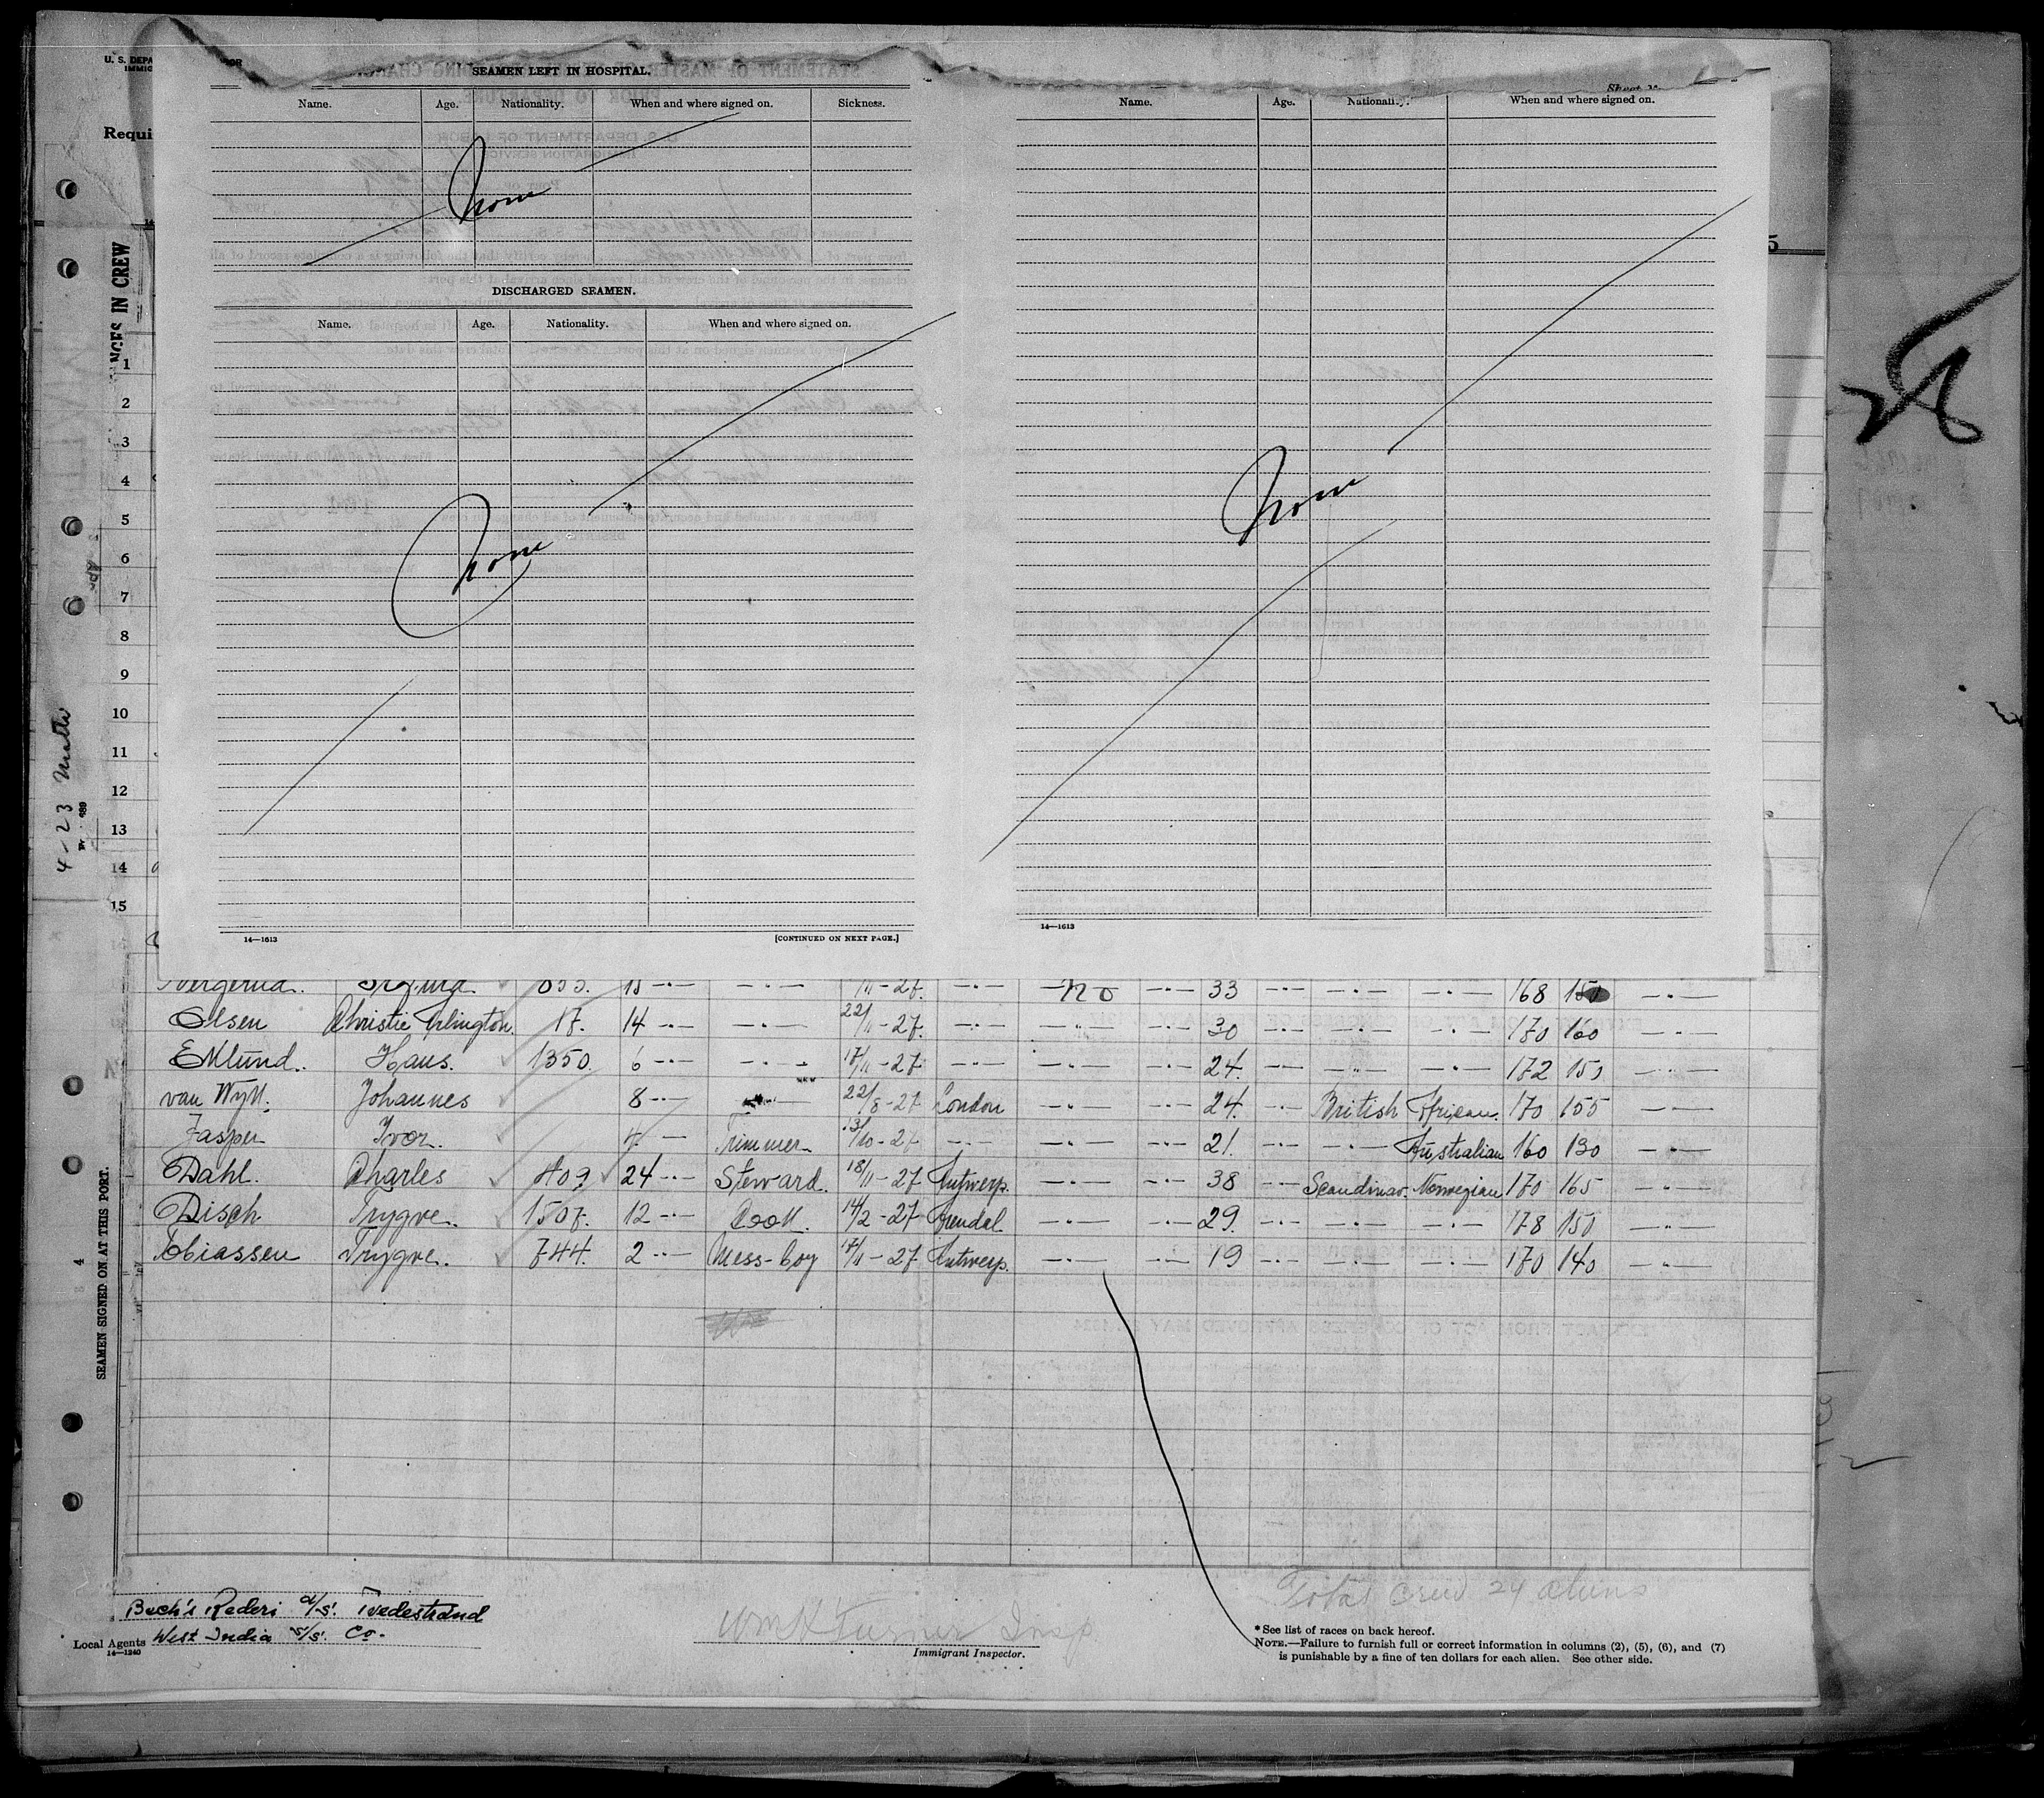 U. S. DEPA
IMMIG
Requi
SEAMEN LEFT IN HOSPITAL.
Name. Age. Nationality. When and where signed on. Sickness.
None
DISCHARGED SEAMEN.
Name. Age. Nationality. When and where signed on.
None
14—1613 [CONTINUED ON NEXT PAGE.]
Name. Age. Nationality. When and where signed on.
None
14—1613
5
28
NGES IN CREW
1
2
3
4
5
6
7
8
9
10
11
12
13
14
15
4-23
SEAMEN SIGNED ON AT THIS PORT.
4
15 -"- -"- -"- no -"- 33 -"- -"- -"- 168 150 -"-
Olsen Christie Arlington. 17. 14 -"- -"- 22/11-27. -"- -"- 30 -"- -"- -"- 170 160 -"-
Eklund. Hans. 1350. 6 -"- -"- 17/11-27 -"- -"- 24. -"- -"- -"- 172 150 -"-
van Wyk. Johannes 8 -"- -"- 22/8-27 London -"- -"- 24. -"- British African. 170 155 -"-
Jasper Ivor. 4 -"- Trimmer 31/10-27 -"- -"- -"- 21. -"- -"- Australian 160 130 -"-
Dahl. Charles 409 24 -"- Steward. 18/11-27 Antwerp. -"- -"- 38 -"- Scandinav. Norwegian 170 165 -"-
Disch Trygve. 1507. 12 -"- Cook. 14/2-27 Arendal. -"- -"- 29. -"- -"- -"- 178 150 -"-
Tobiassen Trygve. 744. 2 -"- Mess-boy 17/11-27 Antwerp. -"- -"- 19 -"- -"- -"- 170 140 -"-
Total Crew 24 aliens
Bech's Rederi a/s. Tvedestrand
Local Agents West India s/s. Co.
14—1240
Wm H Turner Insp
Immigrant Inspector.
* See list of races on back hereof.
NOTE.—Failure to furnish full or correct information in columns (2), (5), (6), and (7)
is punishable by a fine of ten dollars for each alien. See other side.